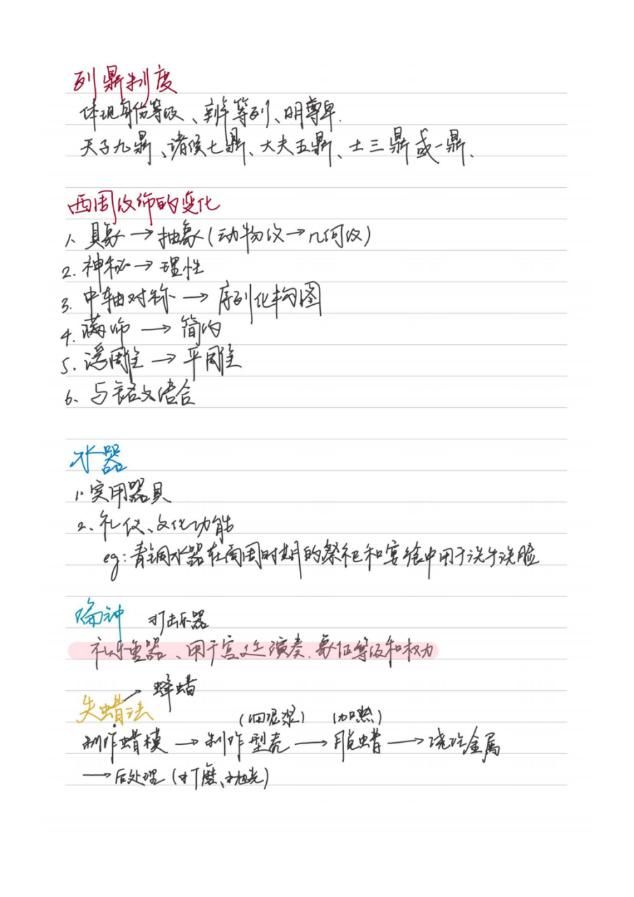 列鼎制度
体现身份等级、辨等列、明尊卑.
天子九鼎、诸侯七鼎、大夫五鼎、士三鼎或一鼎、
西周纹饰的变化
1. 具象→抽象(动物纹→几何纹)
2. 神秘→理性
3. 中轴对称→序列化构图
4. 满饰→简约
5. 浮雕→平雕
6. 与铭文结合
水器
1. 实用器具
2. 礼仪、文化功能
eg: 青铜水器在商周时期的祭祀和宴飨中用于洗手洗脸
编钟 打击乐器
礼乐重器、用于宫廷演奏.象征等级和权力
失蜡法 → 蜂蜡
(回泥浆) (加热)
制作蜡模→制作型壳→脱蜡→浇注金属
→后处理(打磨、抛光)